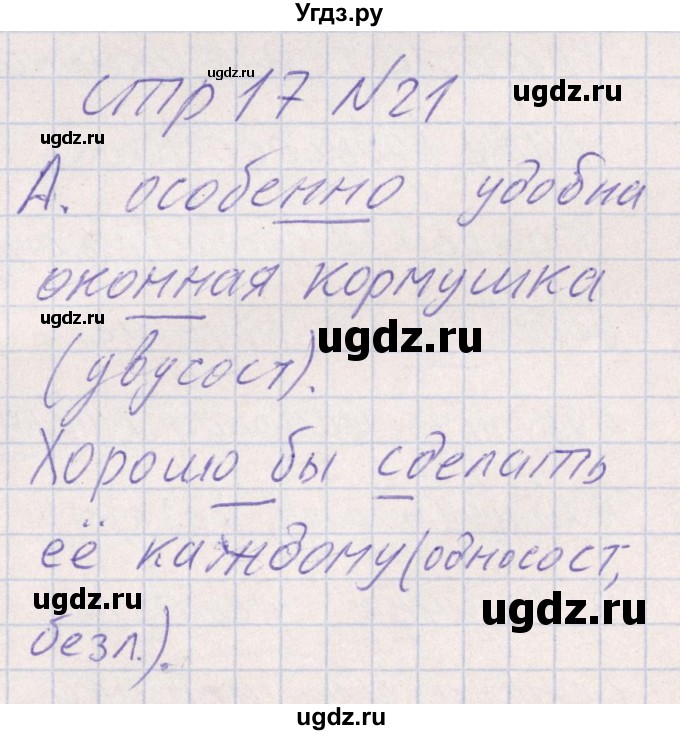 Угдз.ру
стр 17 №21
А. особенно удобна
оконная кормушка
(двусост).
Хорошо бы сделать
её каждому (односост,
безл.).
ugdz.ru
ugdz.ru
ugdz.ru
ugdz.ru
ugdz.ru
ugdz.ru
ugdz.ru
ugdz.ru
ugdz.ru